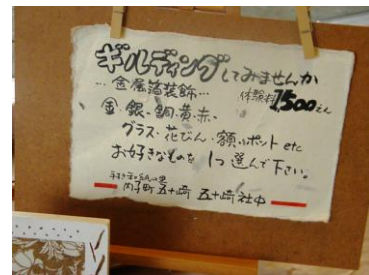 ギルディングしてみませんか
…金属箔装飾…
体験料1,500えん
金・銀・銅・黄・赤・
グラス・花びん・額・ポット etc
お好きなものを 1つ選んで下さい。
内子町五十崎 五十崎社中